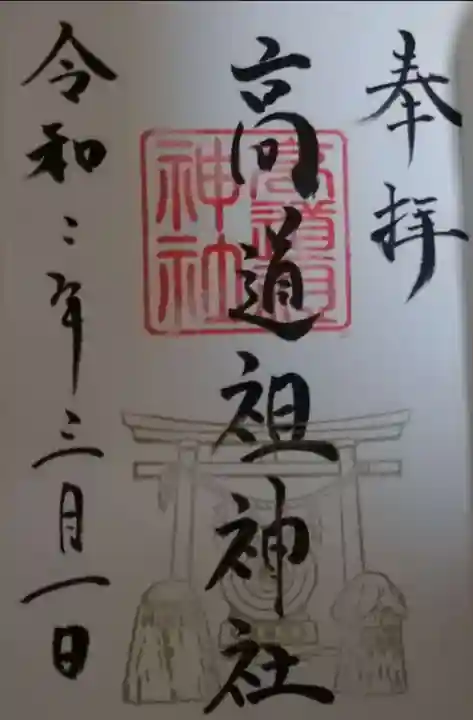 奉拝
高道祖神社
高道祖神社
令和二年三月一日